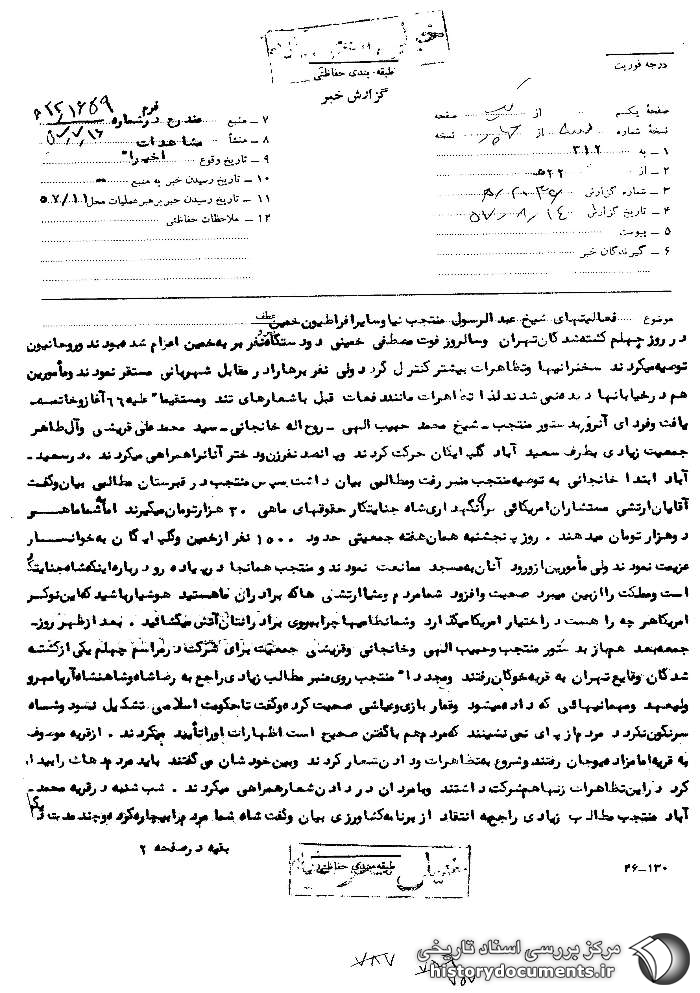 درجه فوریت
طبقه بندی حفاظتی
گزارش خبر
صفحه یکم از صفحه
نسخه شماره از نسخه
۱ – به ۳۱۲
۲ – از ۵۲۲
۳ – شماره گزارش
۴ – تاریخ گزارش ۵۷/۸/۱۴
۵ – پیوست
۶ – گیرندگان خبر
۷ – منبع مندرج در شماره فرم ۲۲/۱۶۵۹
۵۷/۷/۱۶
۸ – منشأ مشاهدات
۹ – تاریخ وقوع اخیرا"
۱۰ – تاریخ رسیدن خبر به منبع
۱۱ – تاریخ رسیدن خبر برهبر عملیات محل
۱۲ – ملاحظات حفاظتی
موضوع فعالیتهای شیخ عبدالرسول منتجب نیا و سایر افراطیون خمین
عطف
پیرو
در روز چهلم کشته شدگان تهران وسالروز فوت مصطفی خمینی دو دستگاه نفر بر به خمین اعزام شده بودند وروحانیون
توصیه میکردند سخنرانیها وتظاهرات بیشتر کنترل گردد ولی نفر برها را در مقابل شهربانی مستقر نمودند ومأمورین
هم در خیابانها دیده نمی شدند لذا تظاهرات مانند دفعات قبل باشعارهای تند ومستقیما" علیه ۶۶ آغاز وخاتمه
یافت وفردای آنروز بدستور منتجب – شیخ محمد حبیب الهی – روح اله خانجانی – سید محمد علی قریشی وآل طاهر
جمعیت زیادی بطرف سعید آباد گلپایگان حرکت کردند و پانصد نفر زن ودختر آنانرا همراهی میکردند . در سعید –
آباد ابتدا خانجانی به توصیه منتجب منبر رفت ومطالبی بیان داشت سپس منتجب در قبرستان مطالبی بیان وگفت
آقایان ارتشی مستشاران امریکائی برای نگهداری شاه جنایتکار حقوقهای ماهی ۳۰ هزار تومان میگیرند اما بشما ماهـی
دو هزار تومان میدهند . روز پنجشنبه همان هفته جمعیتی حدود ۱۵۰۰ نفر از خمین وگلپایگان به خوانسار
عزیمت نمودند ولی مأمورین از ورود آنان به مسجد ممانعت نمودند و منتجب همانجا در پیاده رو درباره اینکه شاه جنایتکار
است ومملکت را از بین میبرد صحبت وافزود شما مردم وشما ارتشی ها که برادران ما هستید هوشیار باشید که این نوکر
امریکا هر چه را هست در اختیار امریکا میگذارد وشما نظامیها چرا بروی برادرانتان آتش میگشائید . بعد از ظهر روز –
جمعه بعد هم باز بدستور منتجب وحبیب الهی وخانجانی وقریشی جمعیت برای شرکت در مراسم چهلم یکی از کشته
شدگان وقایع تهران به قریه خوگان رفتند ومجددا" منتجب روی منبر مطالب زیادی راجع به رضاشاه وشاهنشاه آریامهر و
ولیعهد ومهمانیهائی که داده میشود وقمار بازی وعیاشی صحبت کرده وگفت تا حکومت اسلامی تشکیل نشود وشاه
سرنگون نگردد مردم از پای نمی نشینند که مردم هم باگفتن صحیح است اظهارات او را تأیید میکردند . از قریه موصوف
به قریه امامزاده یوجان رفتند وشروع به تظاهرات ودادن شعار کردند وبین خودشان می گفتند باید مردم دهات را بیدار
کرد در این تظاهرات زنها هم شرکت داشتند وبامردان در دادن شعار همراهی میکردند . شب شنبه در قریه محمد –
آباد منتجب مطالب زیادی راجع به انتقاد از برنامه کشاورزی بیان وگفت شاه شما مردم را بیچاره کرده وچند مدت دیگر
بقیه در صفحه ۲
طبقه بندی حفاظتی
۲۶–۱۳۰
مرکز بررسی اسناد تاریخی
historydocuments.ir